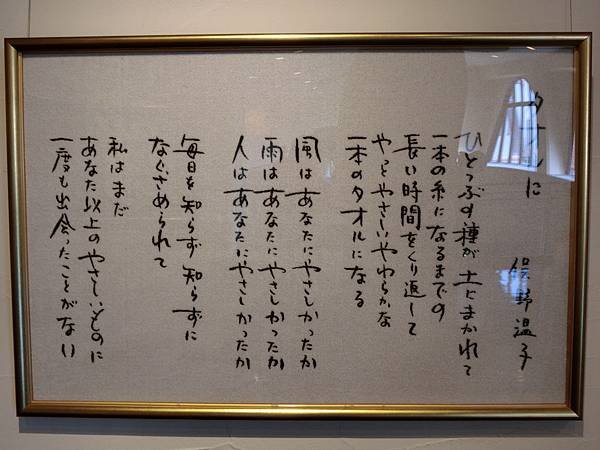 タオルに
俣野温子
ひとつぶの種が土にまかれて
一本の糸になるまでの
長い時間をくり返して
やっとやさしいやわらかな
一本のタオルになる
風はあなたにやさしかったか
雨はあなたにやさしかったか
人はあなたにやさしかったか
毎日を知らず知らずに
なぐさめられて
私はまだ
あなた以上のやさしいものに
一度も出会ったことがない